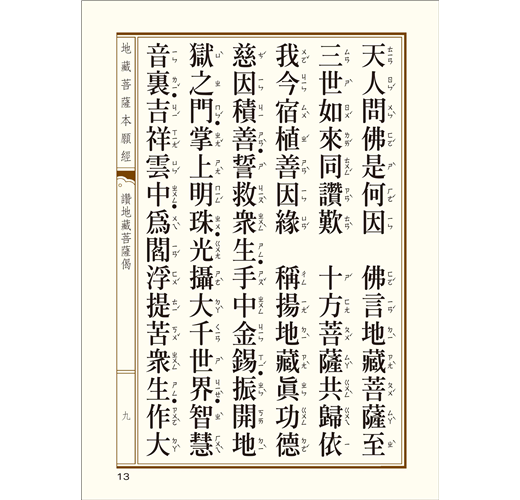 天人問佛是何因　佛言地藏菩薩至
三世如來同讚歎　十方菩薩共歸依
我今宿植善因緣　稱揚地藏眞功德
慈因積善誓救眾生手中金錫振開地
獄之門掌上明珠光攝大千世界智慧
音裏吉祥雲中為閻浮提苦眾生作大
地藏菩薩本願經
讚地藏菩薩偈
九
13